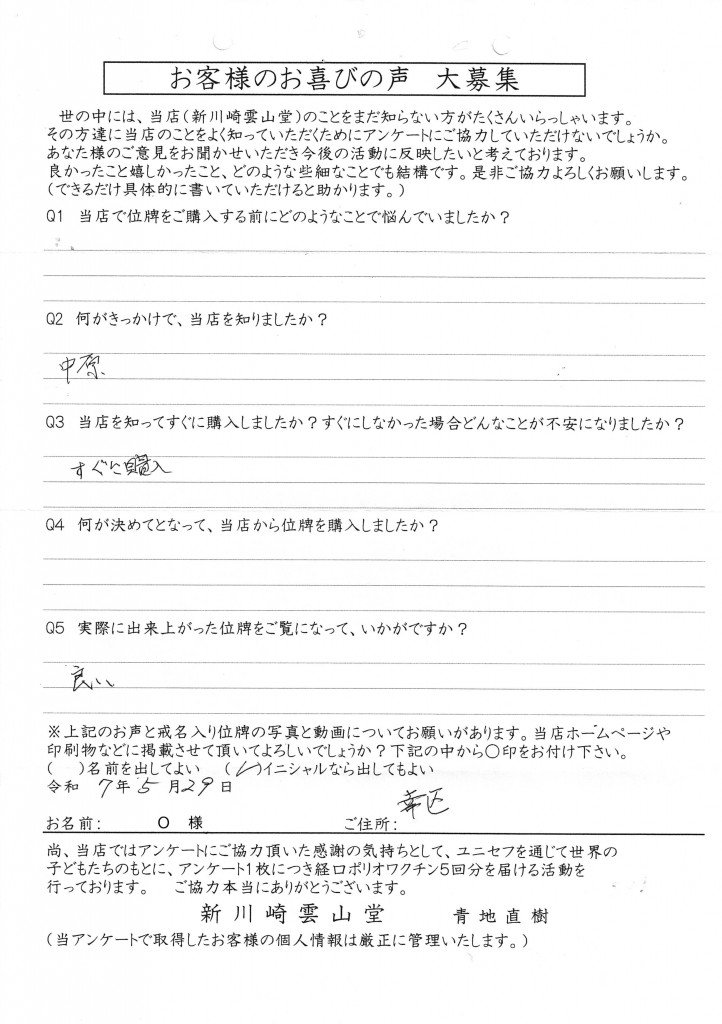 お客様のお喜びの声　大募集
世の中には、当店(新川崎雲山堂)のことをまだ知らない方がたくさんいらっしゃいます。
その方達に当店のことをよく知っていただくためにアンケートにご協力していただけないでしょうか。
あなた様のご意見をお聞かせいただき今後の活動に反映したいと考えております。
良かったこと嬉しかったこと、どのような些細なことでも結構です。是非ご協力よろしくお願いします。
(できるだけ具体的に書いていただけると助かります。)
Q1　当店で位牌をご購入する前にどのようなことで悩んでいましたか?
Q2　何がきっかけで、当店を知りましたか?
中原
Q3　当店を知ってすぐに購入しましたか?すぐにしなかった場合どんなことが不安になりましたか?
すぐに購入
Q4　何が決めてとなって、当店から位牌を購入しましたか?
Q5　実際に出来上がった位牌をご覧になって、いかがですか?
良い
※上記のお声と戒名入り位牌の写真と動画についてお願いがあります。当店ホームページや
印刷物などに掲載させて頂いてよろしいでしょうか?下記の中から○印をお付け下さい。
(　)名前を出してよい　(レ)イニシャルなら出してもよい
令和　7年5月29日
お名前:　O　様　ご住所:　幸区
尚、当店ではアンケートにご協力頂いた感謝の気持ちとして、ユニセフを通じて世界の
子どもたちのもとに、アンケート1枚につき経口ポリオワクチン5回分を届ける活動を
行っております。　ご協力本当にありがとうございます。
新川崎雲山堂　青地直樹
(当アンケートで取得したお客様の個人情報は厳正に管理いたします。)